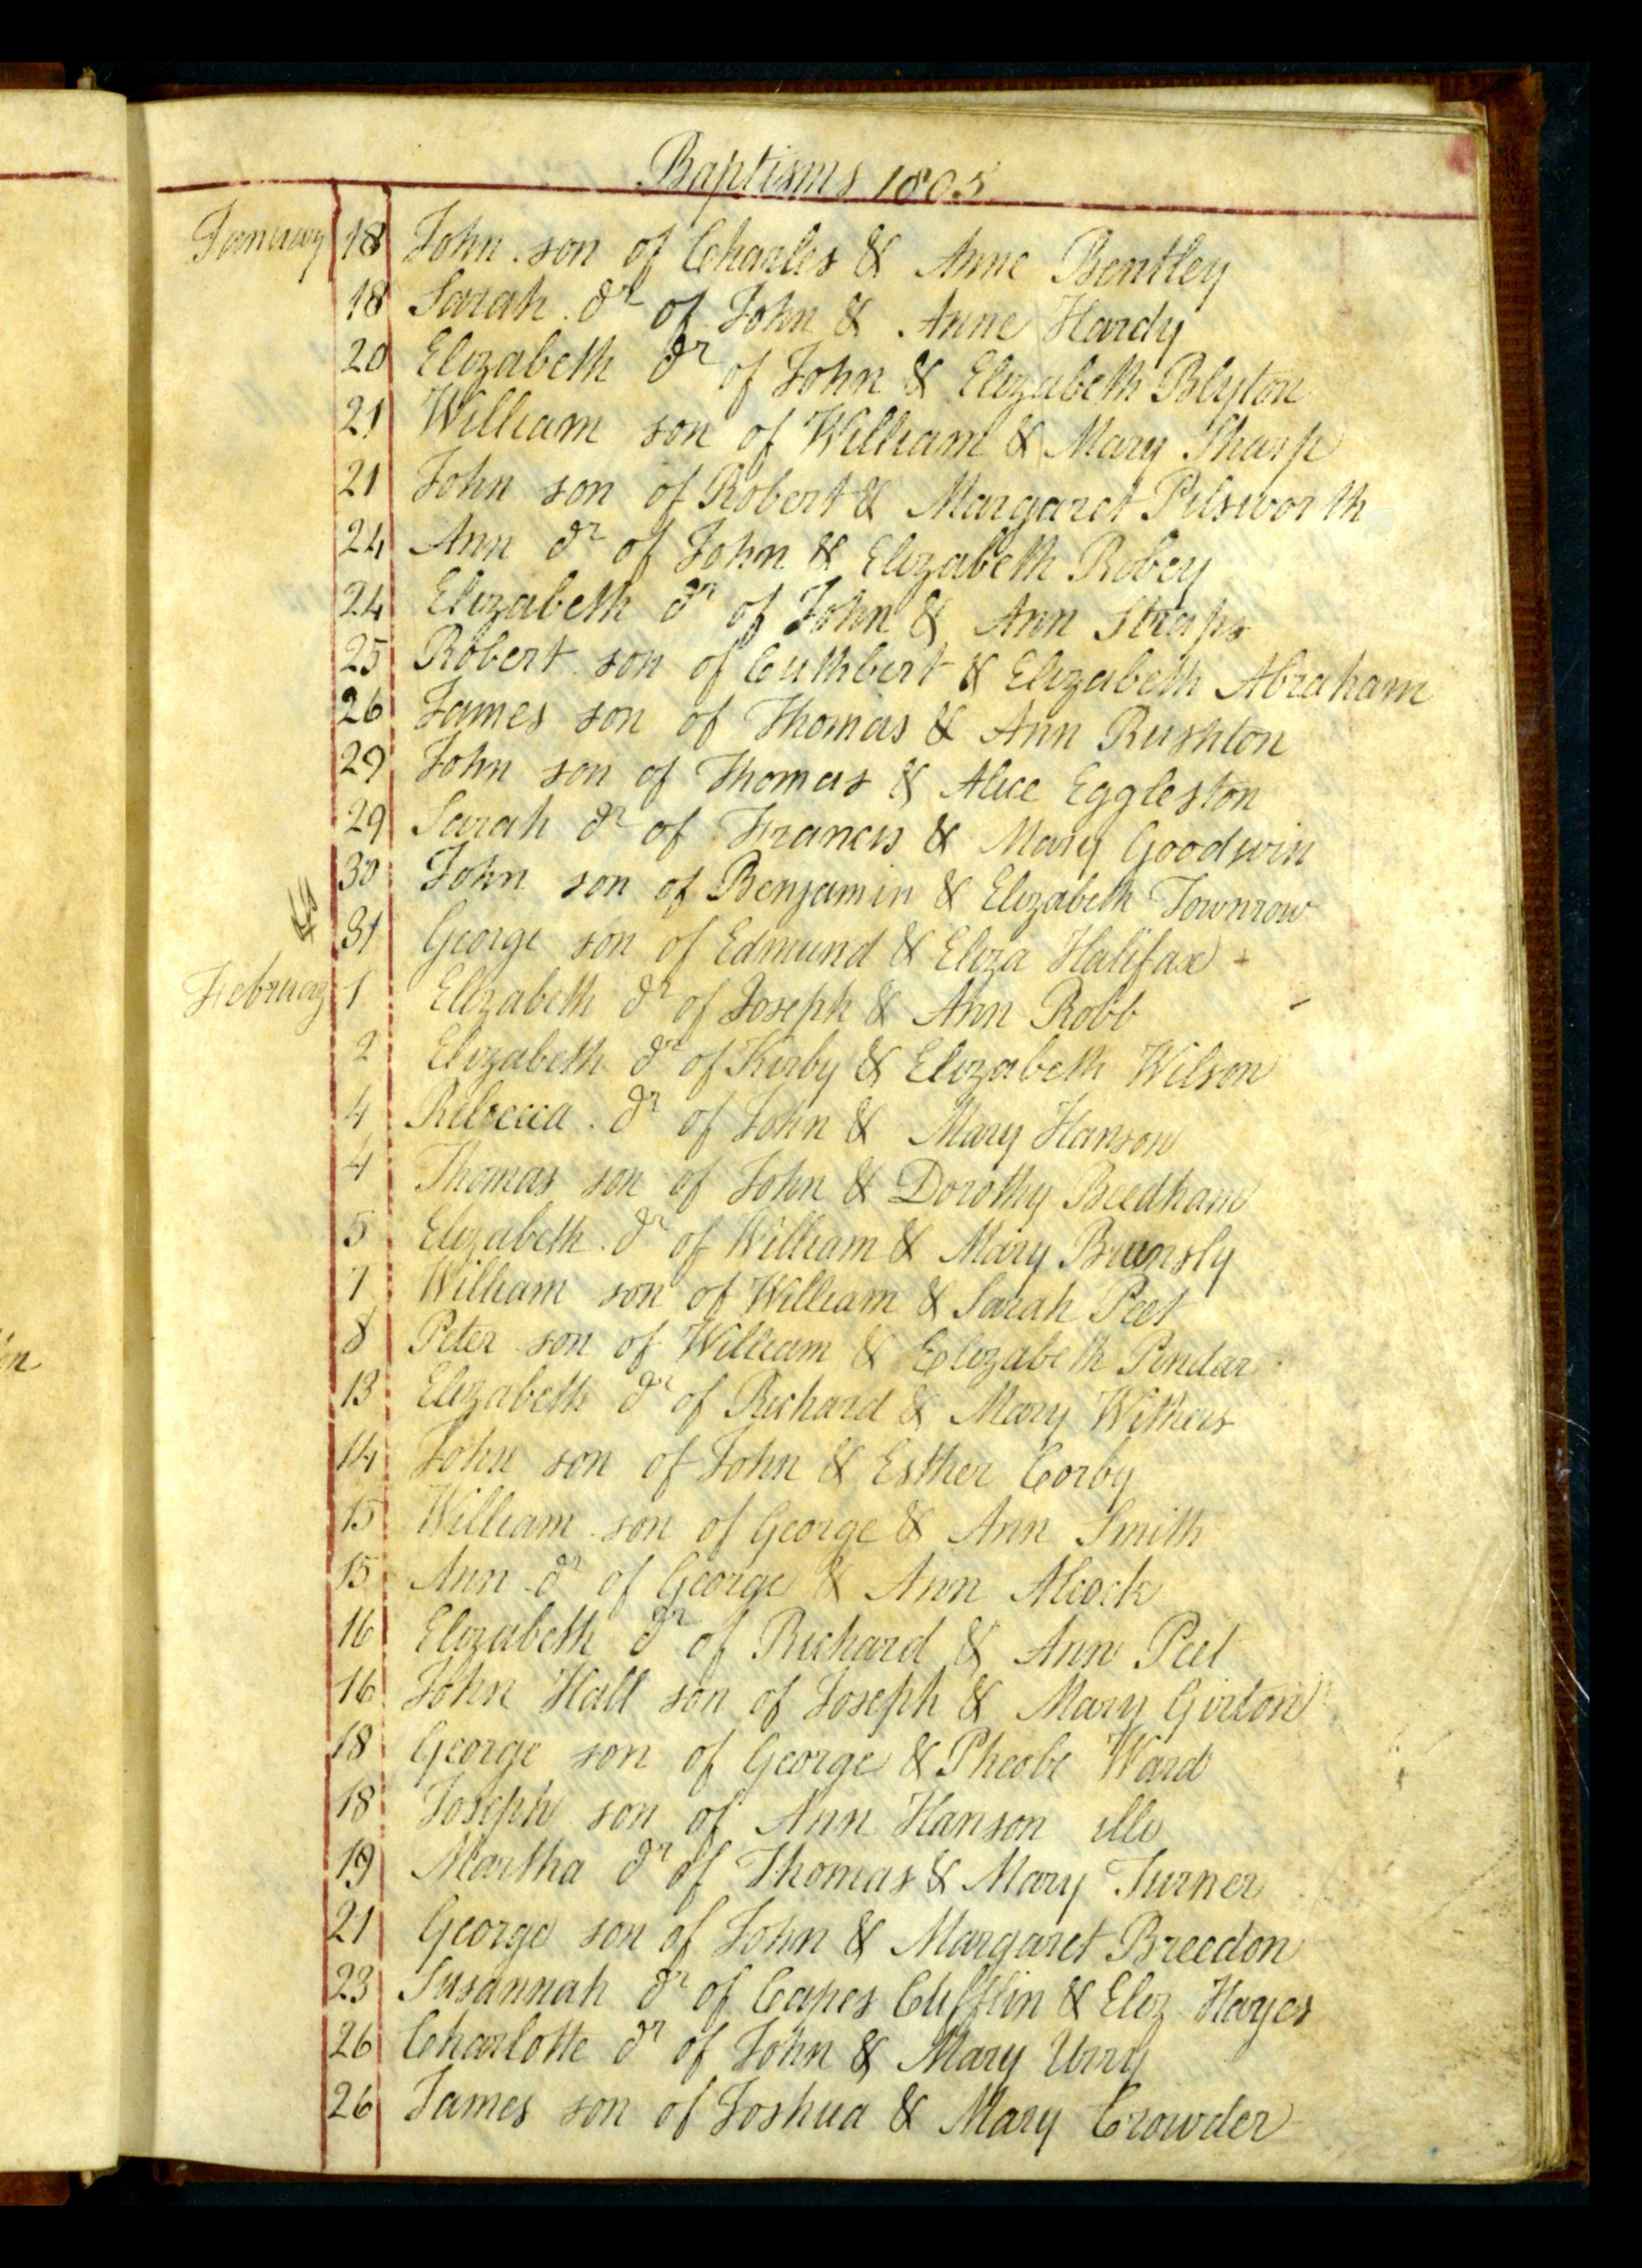 Baptisms 1805
January 18 John son of Charles & Anne Bentley
18 Sarah dr of John & Anne Hardy
20 Elizabeth dr of John & Elizabeth Blyton
21 William son of William & Mary Sharp
21 John son of Robert & Margaret Pilsworth
24 Ann dr of John & Elizabeth Robey
24 Elizabeth dr of John & Ann Straps
25 Robert son of Cuthbert & Elizabeth Abraham
26 James son of Thomas & Ann Rushton
29 John son of Thomas & Alice Eggleston
29 Sarah dr of Francis & Mary Goodwin
30 John son of Benjamin & Elizabeth Townrow
31 George son of Edmund & Eliza Halifax
February 1 Elizabeth dr of Joseph & Ann Robb
2 Elizabeth dr of Kirby & Elizabeth Wilson
4 Rebecca dr of John & Mary Hanson
4 Thomas son of John & Dorothy Beedham
5 Elizabeth dr of William & Mary
7 William son of William & Sarah Peet
8 Peter son of William & Elizabeth Pindar
13 Elizabeth dr of Richard & Mary Withers
14 John son of John & Esther Corby
15 William son of George & Ann Smith
15 Ann dr of George & Ann Alcock
16 Elizabeth dr of Richard & Ann Peet
16 John Hall son of Joseph & Mary Girton
18 George son of George & Pheobe Ward
18 Joseph son of Ann Hanson
19 Martha dr of Thomas & Mary Turner
21 George son of John & Margaret Breedon
23 Susannah dr of Capes Clifflin & Eliz Hayes
26 Charlotte dr of John & Mary Urry
26 James son of Joshua & Mary Crowder